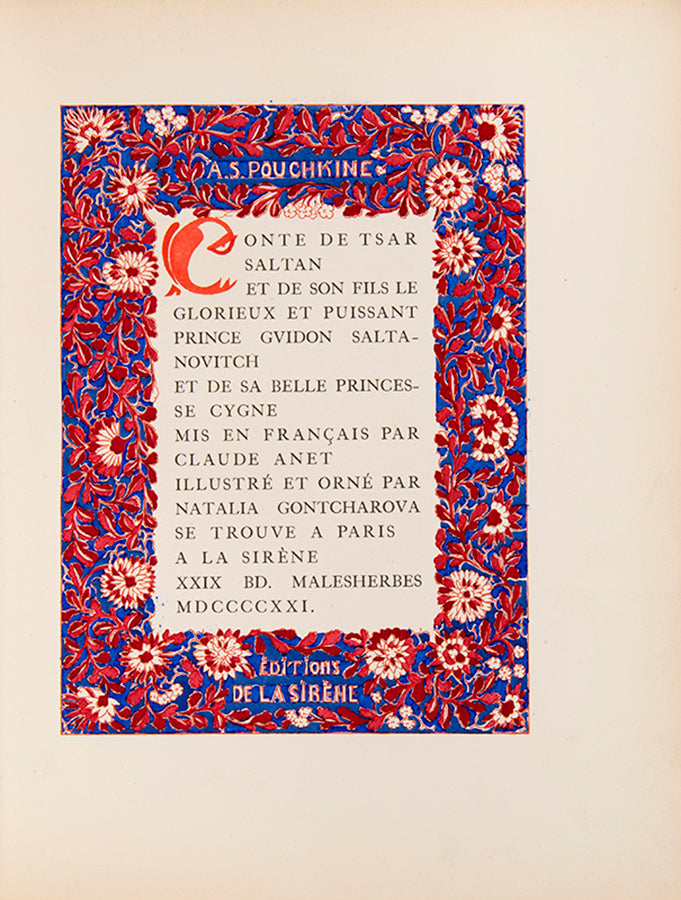 A.S. POUCHKINE
CONTE DE TSAR
SALTAN
ET DE SON FILS LE
GLORIEUX ET PUISSANT
PRINCE GVIDON SALTA-
NOVITCH
ET DE SA BELLE PRINCES-
SE CYGNE
MIS EN FRANÇAIS PAR
CLAUDE ANET
ILLUSTRÉ ET ORNÉ PAR
NATALIA GONTCHAROVA
SE TROUVE A PARIS
A LA SIRÈNE
XXIX BD. MALESHERBES
MDCCCCXXI.
ÉDITIONS
DE LA SIRÈNE